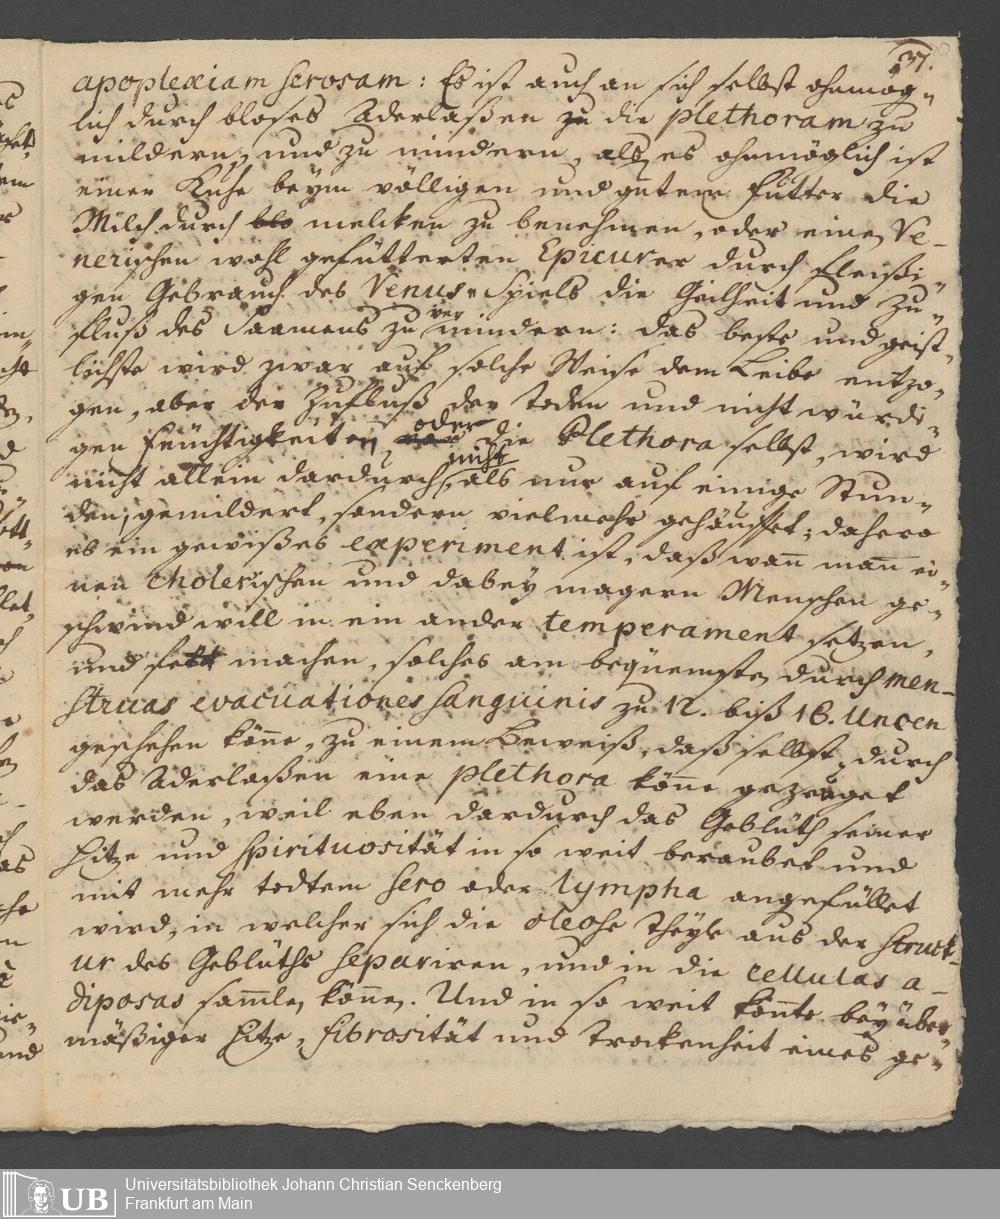 37.
apoplexiam serosam: Es ist auch an sich selbst ohnmög-
lich durch bloses Aderlaßen zu die plethoram zu
mildern, und zu mindern, als es ohnmöglich ist
einer Kuhe beym völligen und gutem Futter die
Milch durch blo melcken zu benehmen, oder einen Ve-
nerischen wohl gefütterten Epicurer durch fleißi-
gen Gebrauch des Venus-Spiels die Geilheit und Zu-
fluß des Saamens zu vermindern: das beste und geist-
lichste wird zwar auf solche Weise dem Leibe entzo-
gen, aber der Zufluß der toden und nicht würdi-
gen Feüchtigkeiten, oder die Plethora selbst, wird
nicht allein dardurch nicht, als nur auf einige Stun-
den, gemildert, sondern vielmehr gehäuffet; dahero
es ein gewißes experiment ist, daß wañ mañ ei-
nen Cholerischen und dabey magern Menschen ge-
schwind will in ein ander temperament setzen,
und fett machen, solches am bequemsten durch men-
struas evacuationes sanguinis zu 12. biß 16. Uncen
geschehen köñe, zu einem Beweiß, daß selbst durch
das Aderlaßen eine plethora köñe gezeuget
werden, weil eben dardurch das Geblüth seiner
Hitze und Spirituosität in so weit beraubet und
mit mehr todtem sero oder lympha angefüllet
wird, in welcher sich die oleose Theyle aus der Struct-
ur des Geblüths separiren, und in die cellulas a-
diposas sam̃len köñen. Und in so weit köñte bey über-
mäßiger Hitze, fibrosität und Trockenheit eines ge-
UB
Universitätsbibliothek Johann Christian Senckenberg
Frankfurt am Main